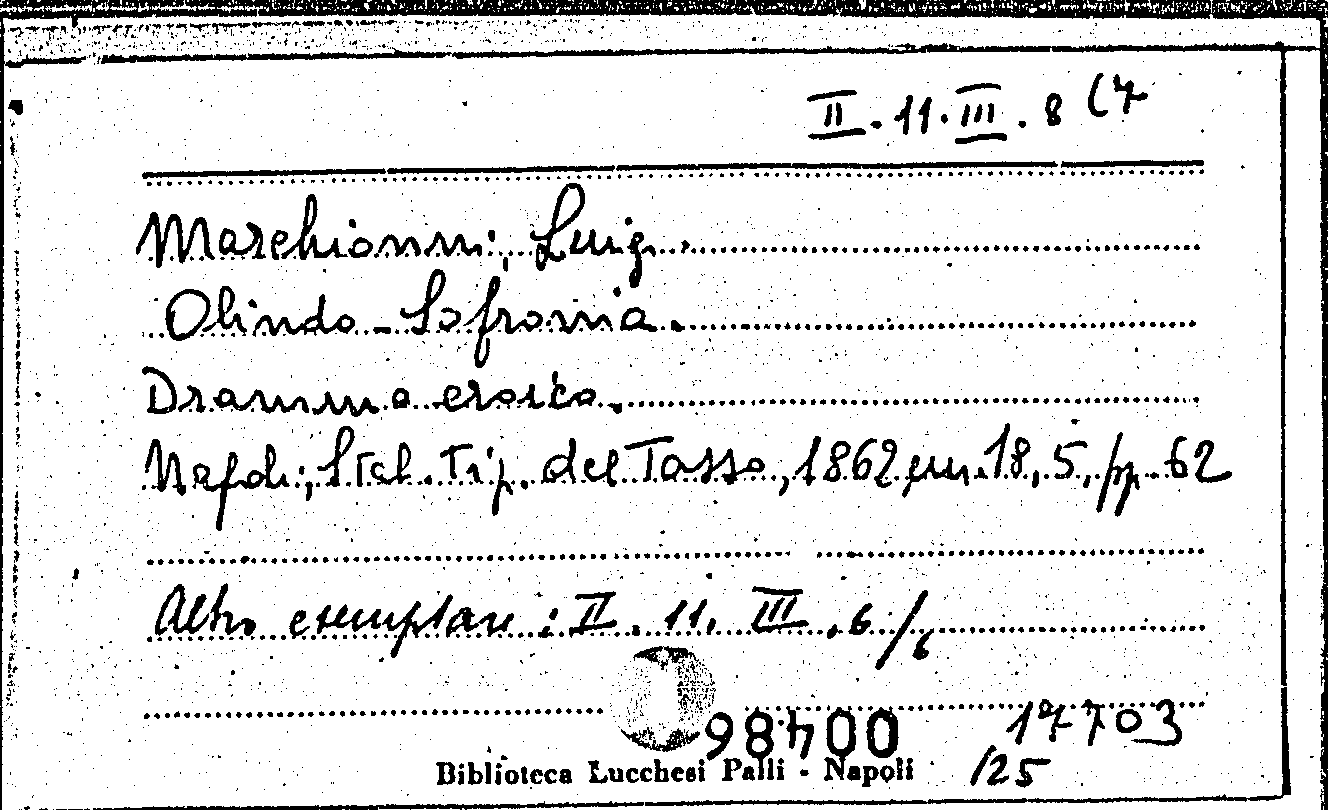 II. 11. III. 8 (7
Marchionni, Luigi.
Olindo - Sofronia.
Dramma eroico.
Napoli; Stab. Tip. del Tasso, 1862, in 18,5, pp. 62
Altro esemplare: II. 11. III. 6/6
00486 17703
Biblioteca Lucchesi Palli - Napoli /25